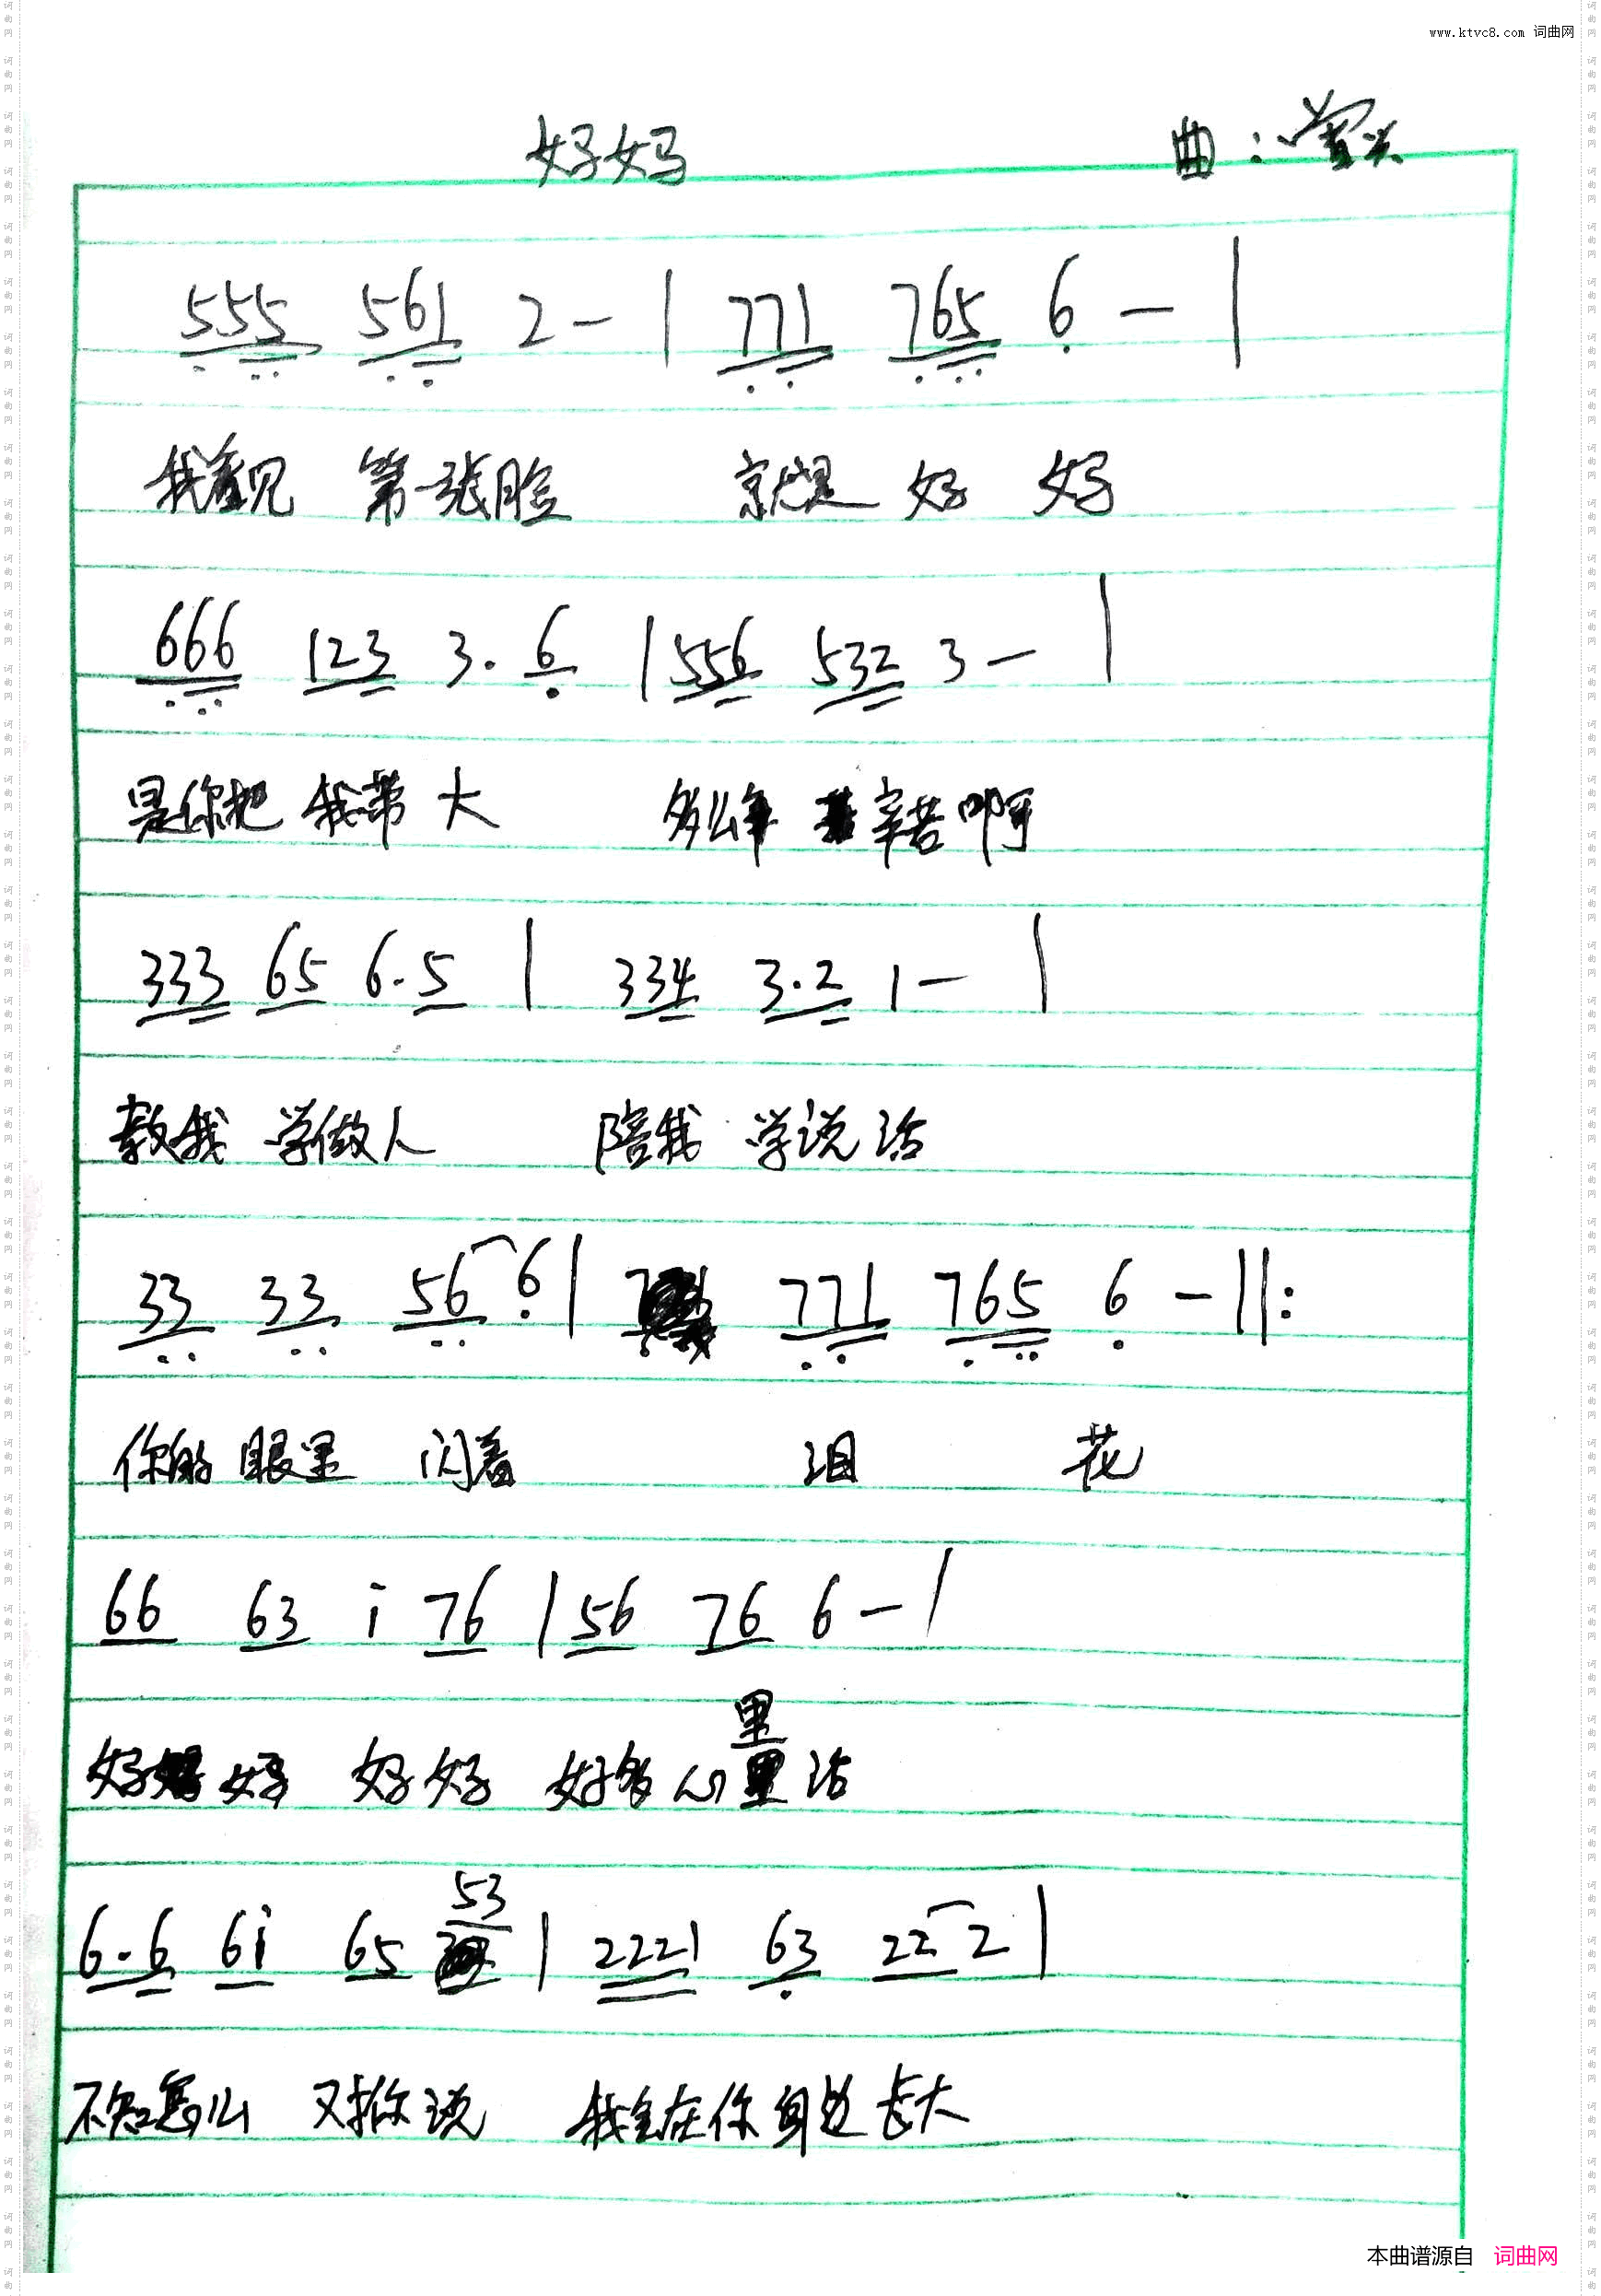 www.ktvc8.com 词曲网
好妈
曲：
555 561 2 - | 771 765 6 - |
我看见 第一张脸 就是 好 好
666 123 3. 6 | 556 532 3 - |
是你把 我带 大 多么 辛苦啊
333 65 6.5 | 334 3.2 1 - |
教我 学做人 陪我 学说话
33 33 56 6 | 771 765 6 - ||:
你的 眼里 闪着 泪 花
66 63 i 76 | 56 76 6 - |
里
好 好 好好 好多心里话
53
6.6 6i 65 | 2221 63 22 2 |
不知怎么 对你说 我在你身边 长大
本曲谱源自 词曲网